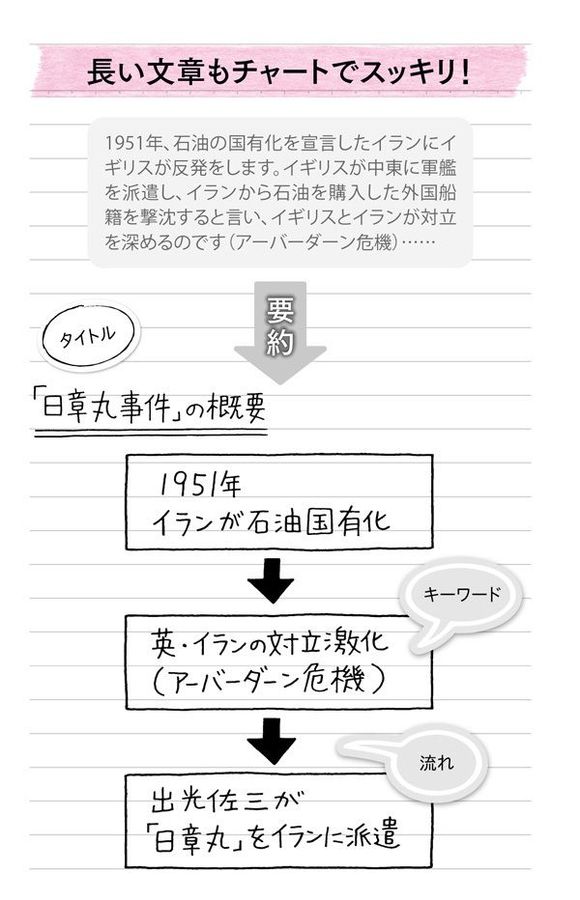 長い文章もチャートでスッキリ！
1951年、石油の国有化を宣言したイランにイ
ギリスが反発をします。イギリスが中東に軍艦
を派遣し、イランから石油を購入した外国船
籍を撃沈すると言い、イギリスとイランが対立
を深めるのです（アーバーダーン危機）……
要約
タイトル
「日章丸事件」の概要
1951年
イランが石油国有化
キーワード
英・イランの対立激化
（アーバーダーン危機）
流れ
出光佐三が
「日章丸」をイランに派遣